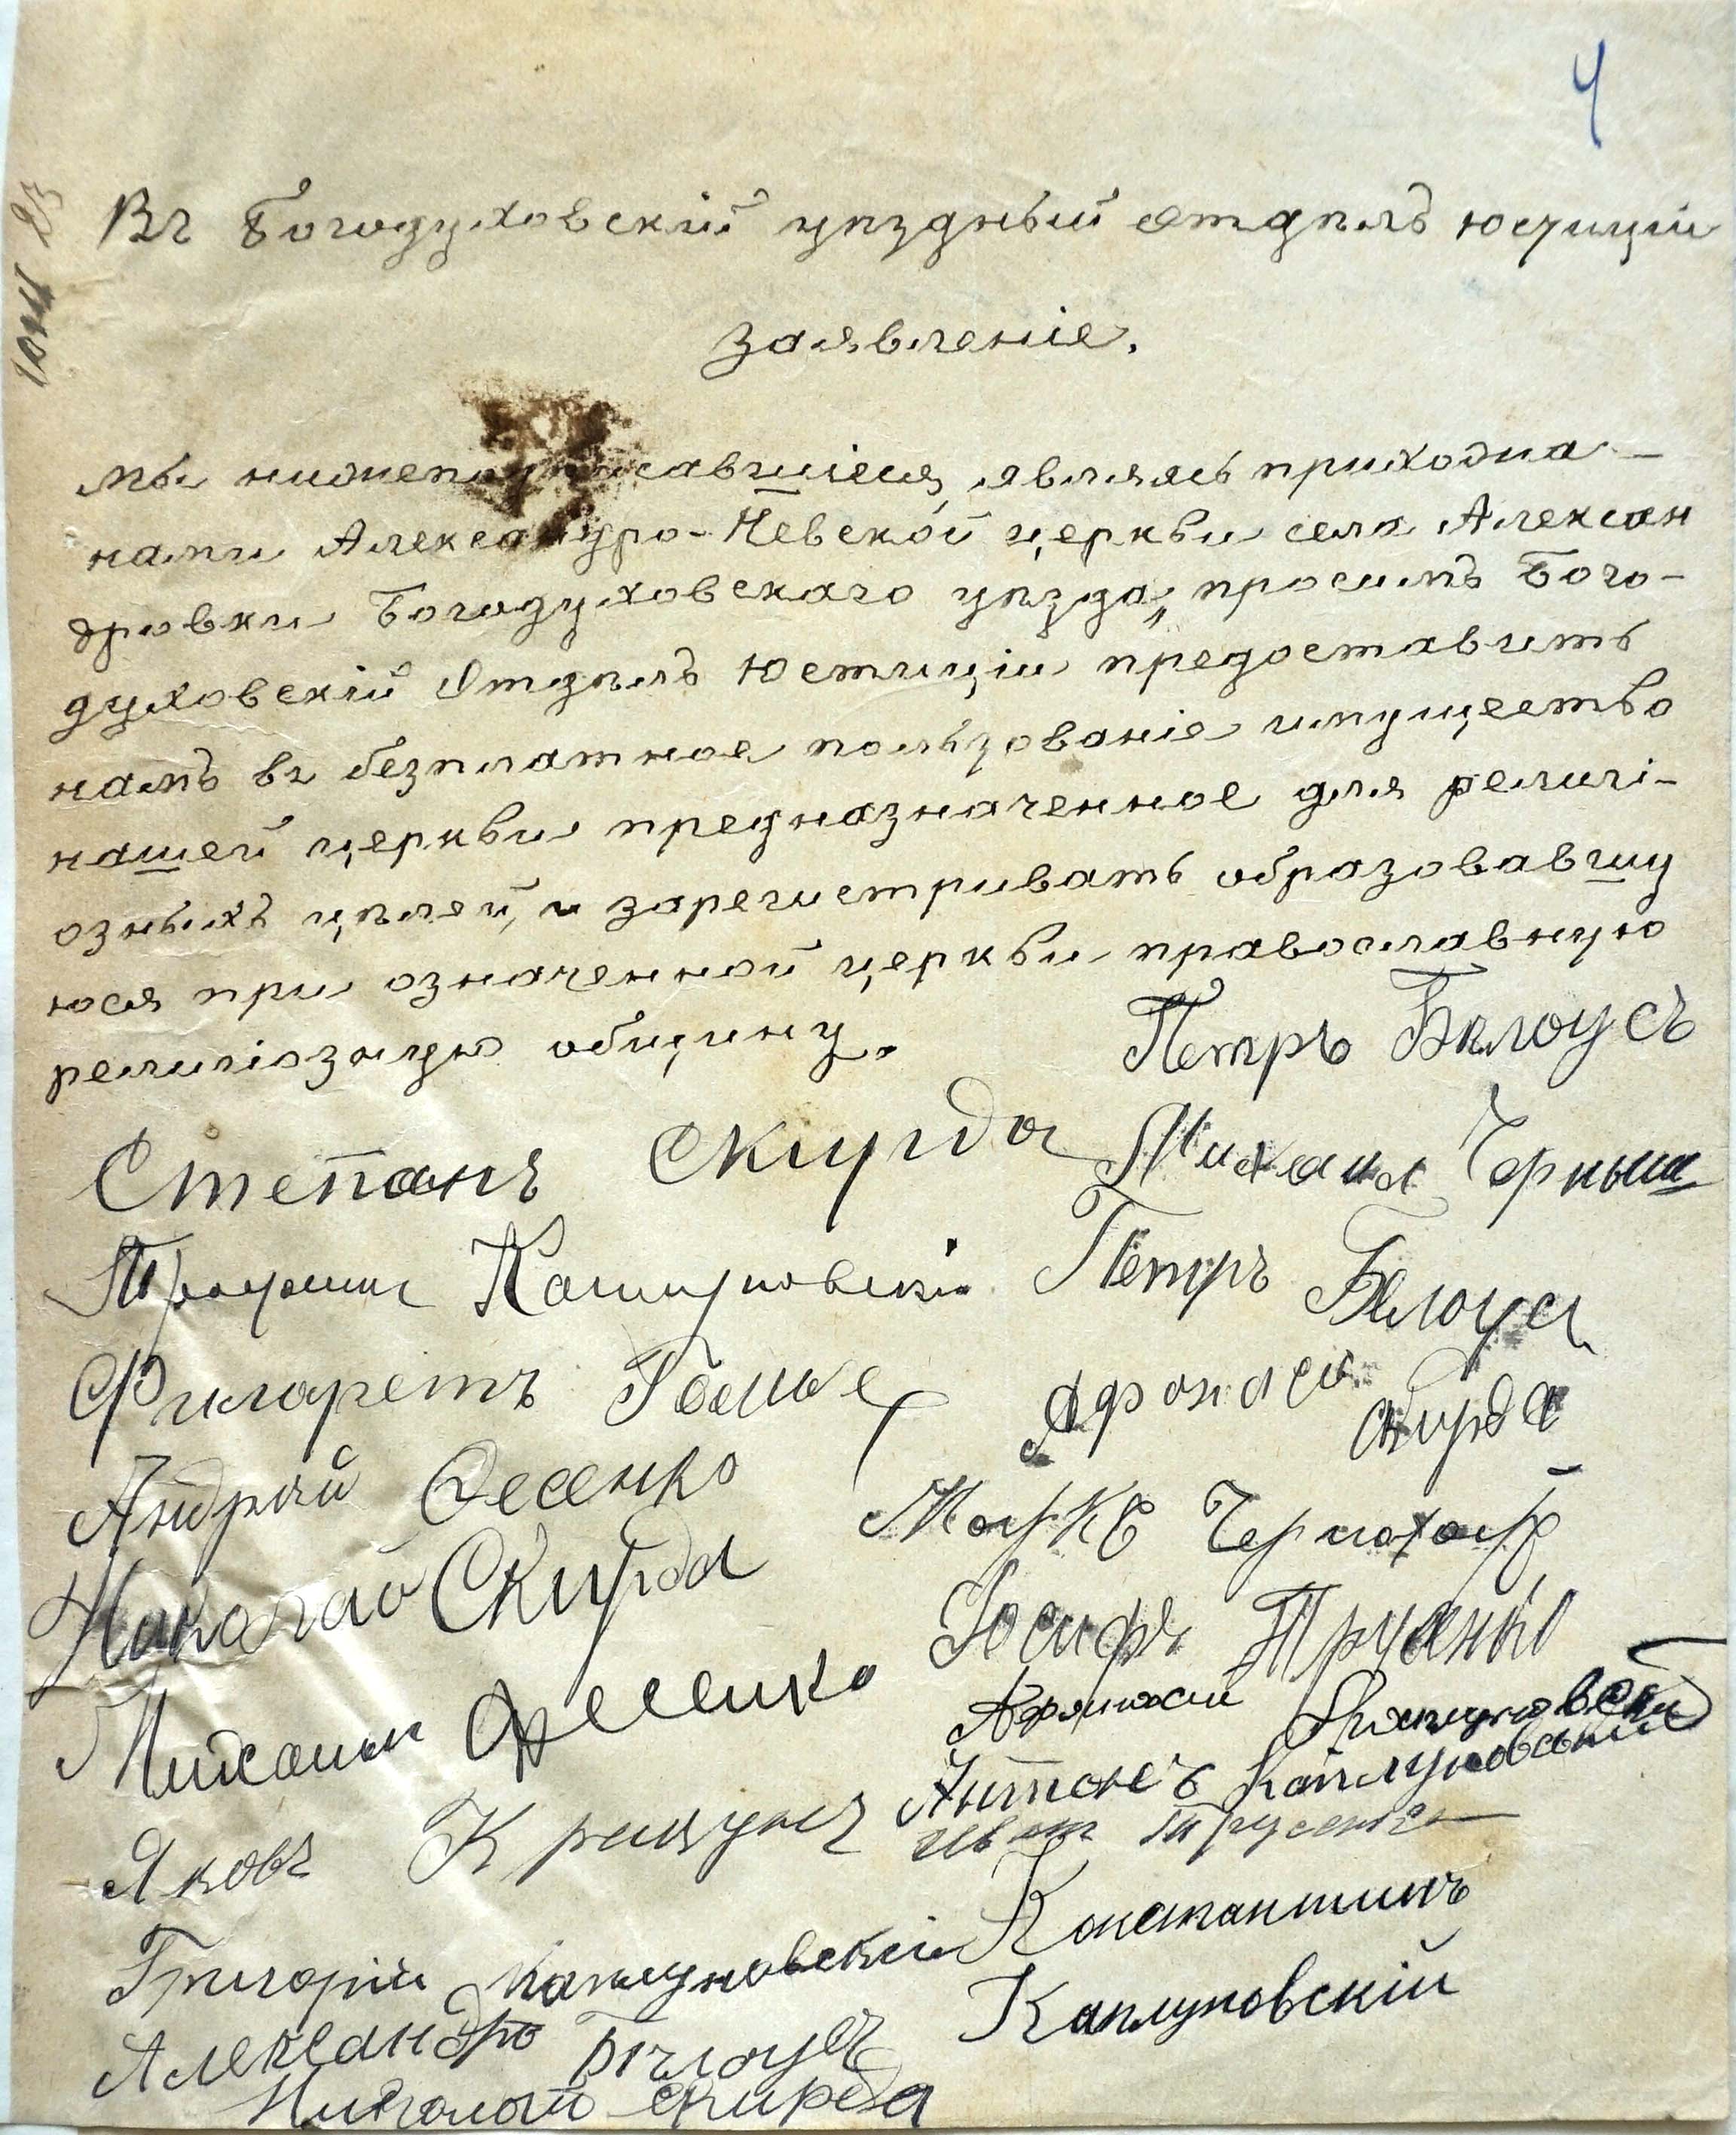 4
Въ Богодуховскій уѣздный отдѣлъ юстиціи
заявленіе.
мы нижеподписавшіеся, являясь прихожа-
нами Александро-Невской церкви села Алексан
дровки Богодуховскаго уѣзда, просимъ Бого-
духовскій Отдѣлъ Юстиціи предоставить
намъ въ безплатное пользованіе имущество
нашей церкви предназначенное для религі-
озныхъ цѣлей, и зарегистривать образовавшу
юся при означенной церкви православную
религіозную общину.
Петръ Бѣлоусъ
Степанъ Скирда
Михаил Черныш
Каплуновскій
Петръ Бѣлоус
Филаретъ
Афонасій
Скирда
Андрей Фесенко
Марко
Николай Скирда
Іосифъ
Михаилъ Фесенко
Афанасій Каплуновскій
Антонъ Каплуновскій
Яковъ
Иван
Константинъ
Григорій Каплуновскій
Каплуновскій
Александръ Бѣлоусъ
Николай Скирда